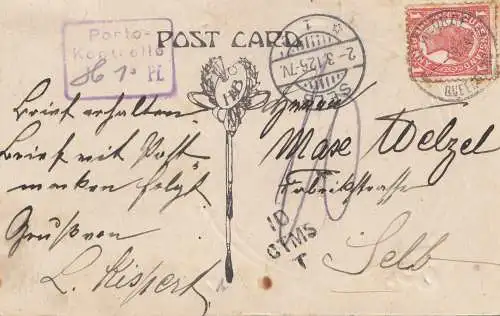 Porto-
Kontrolle
POST CARD
2-3 12.5-7N.
Brief erhalten.
Brief mit Post
marken folgt
Gruß von
L. Kispert
Herrn
Max Welzel
Fabrikstrasse
Selb
10
CTMS
T